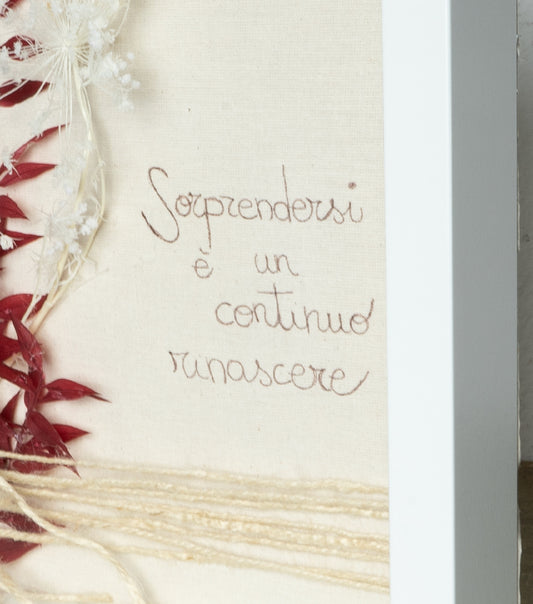 Sorprendersi
è un
continuo
rinascere